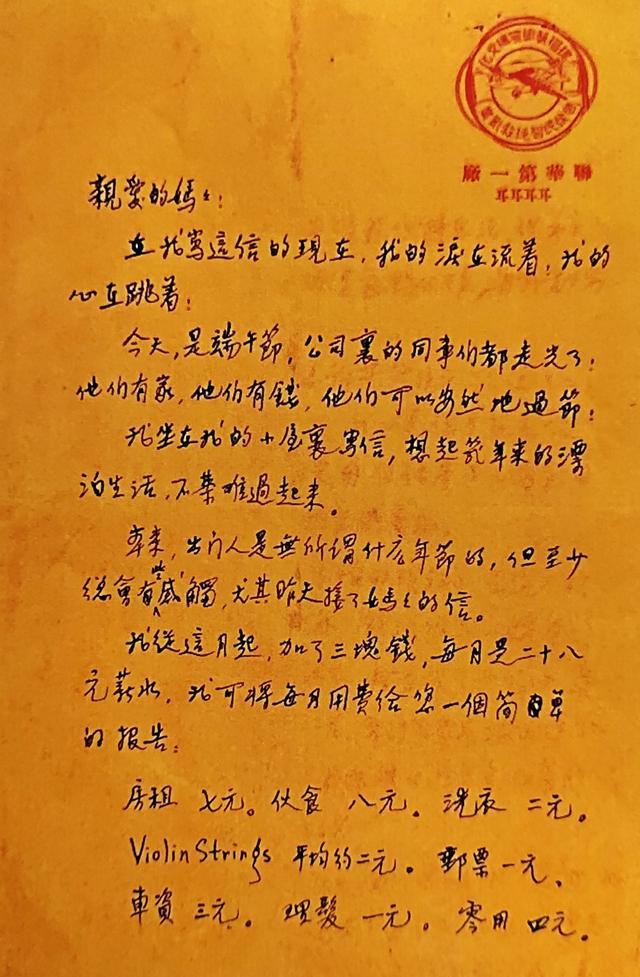 聯華第一廠
親愛的媽々：
在我寫這信的現在，我的淚在流着；我的
心在跳着；
今天，是端午節，公司裏的同事们都走光了；
他们有家，他们有錢，他们可以安然地過節；
我坐在我的小屋裏寫信，想起幾年来的漂
泊生活，不禁难過起来。
本来，出门人是無所謂什么年節的，但至少
總會有些感觸，尤其昨天接了媽々的信。
我從這月起，加了三塊錢，每月是二十八
元薪水，我可將每月用費给您一個简單
的报告：
房租 七元。伙食 八元。洗衣 二元。
Violin Strings 平均约二元。郵票一元、
車資 三元。理髮 一元。零用 四元。